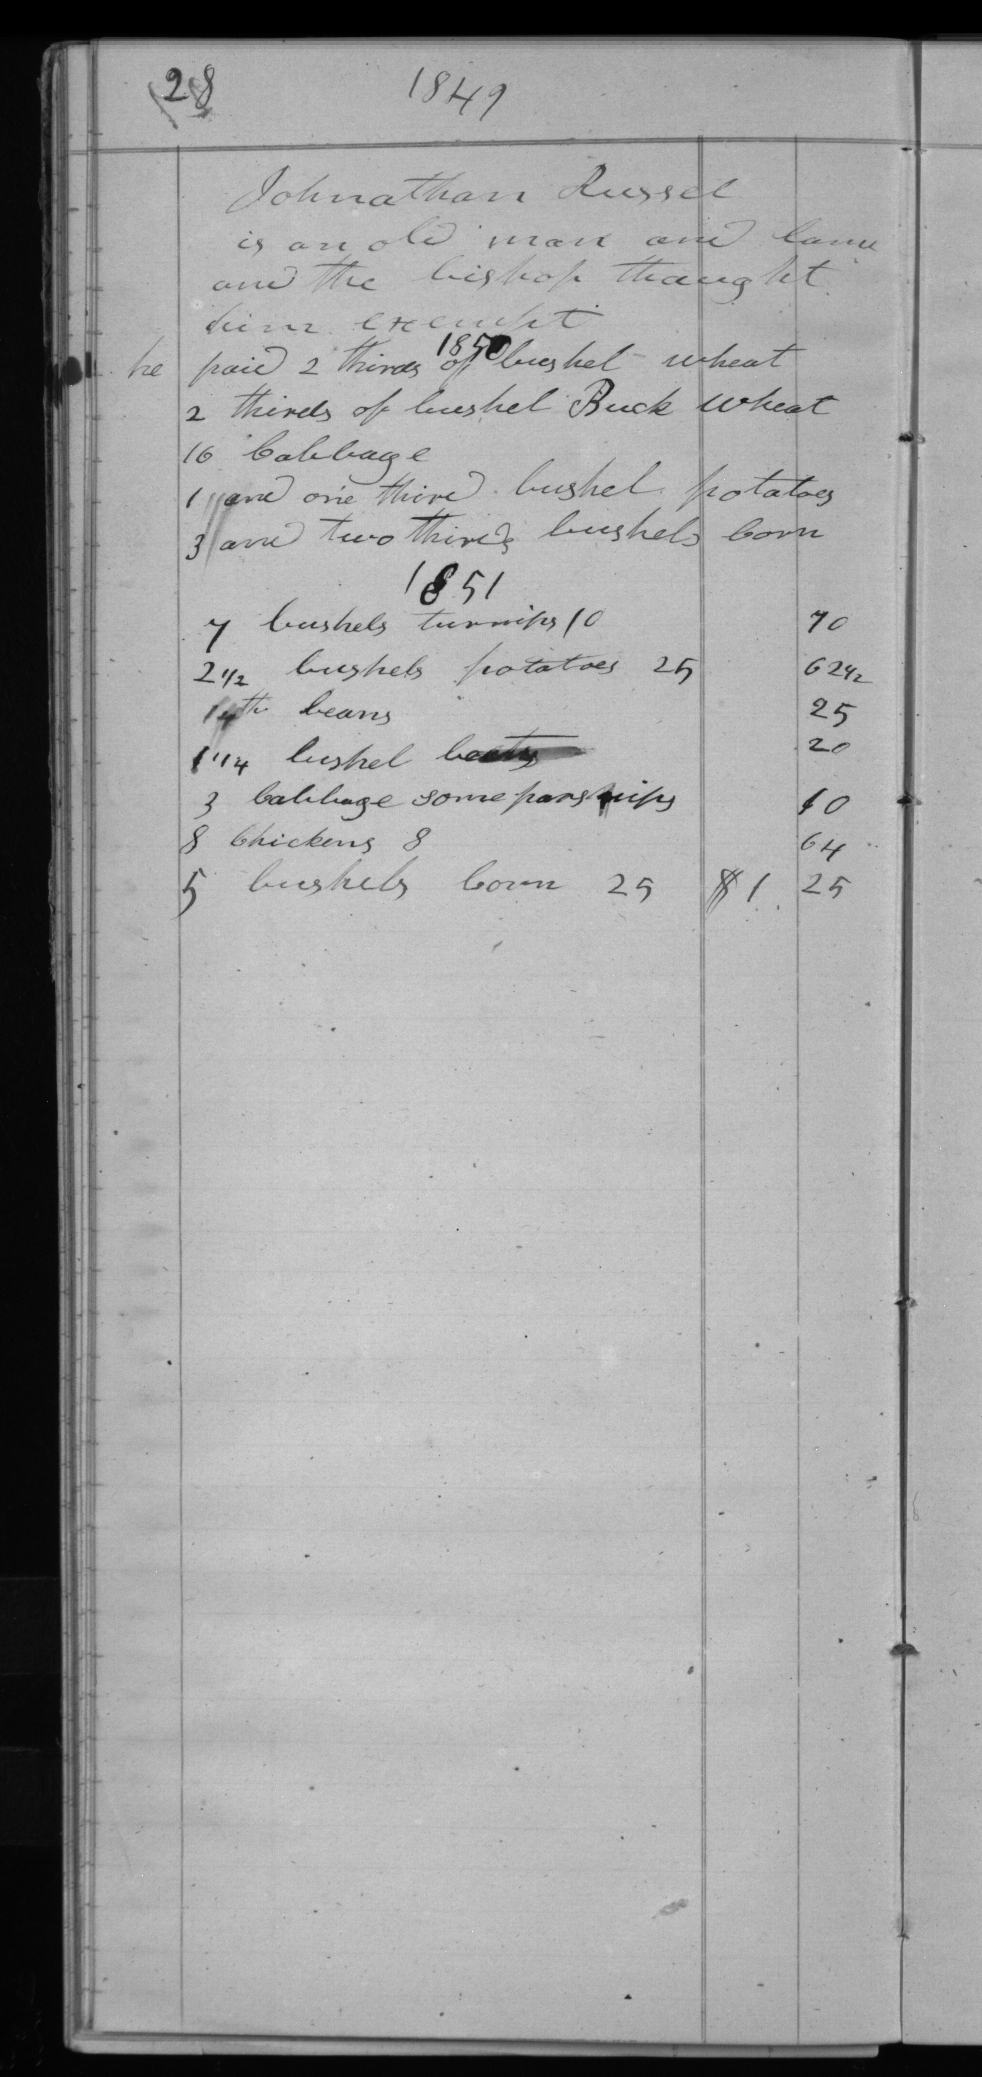 28 1849
Johnathan Russel
is an old man and lame
and the bishop thaught
him exempt
1850
he paid 2 thirds of bushel wheat
2 thirds of bushel Buck Wheat
16 Cabbage
1 and one third bushel potatoes
3 and two thirds bushels Corn
1851
7 bushels turnips 10 70
2 1/2 bushels potatoes 25 62 1/2
beans 25
1 1/4 bushel beets 20
3 Cabbage some parsnips 10
8 Chickens 8 64
5 bushels Corn 25 $1 25